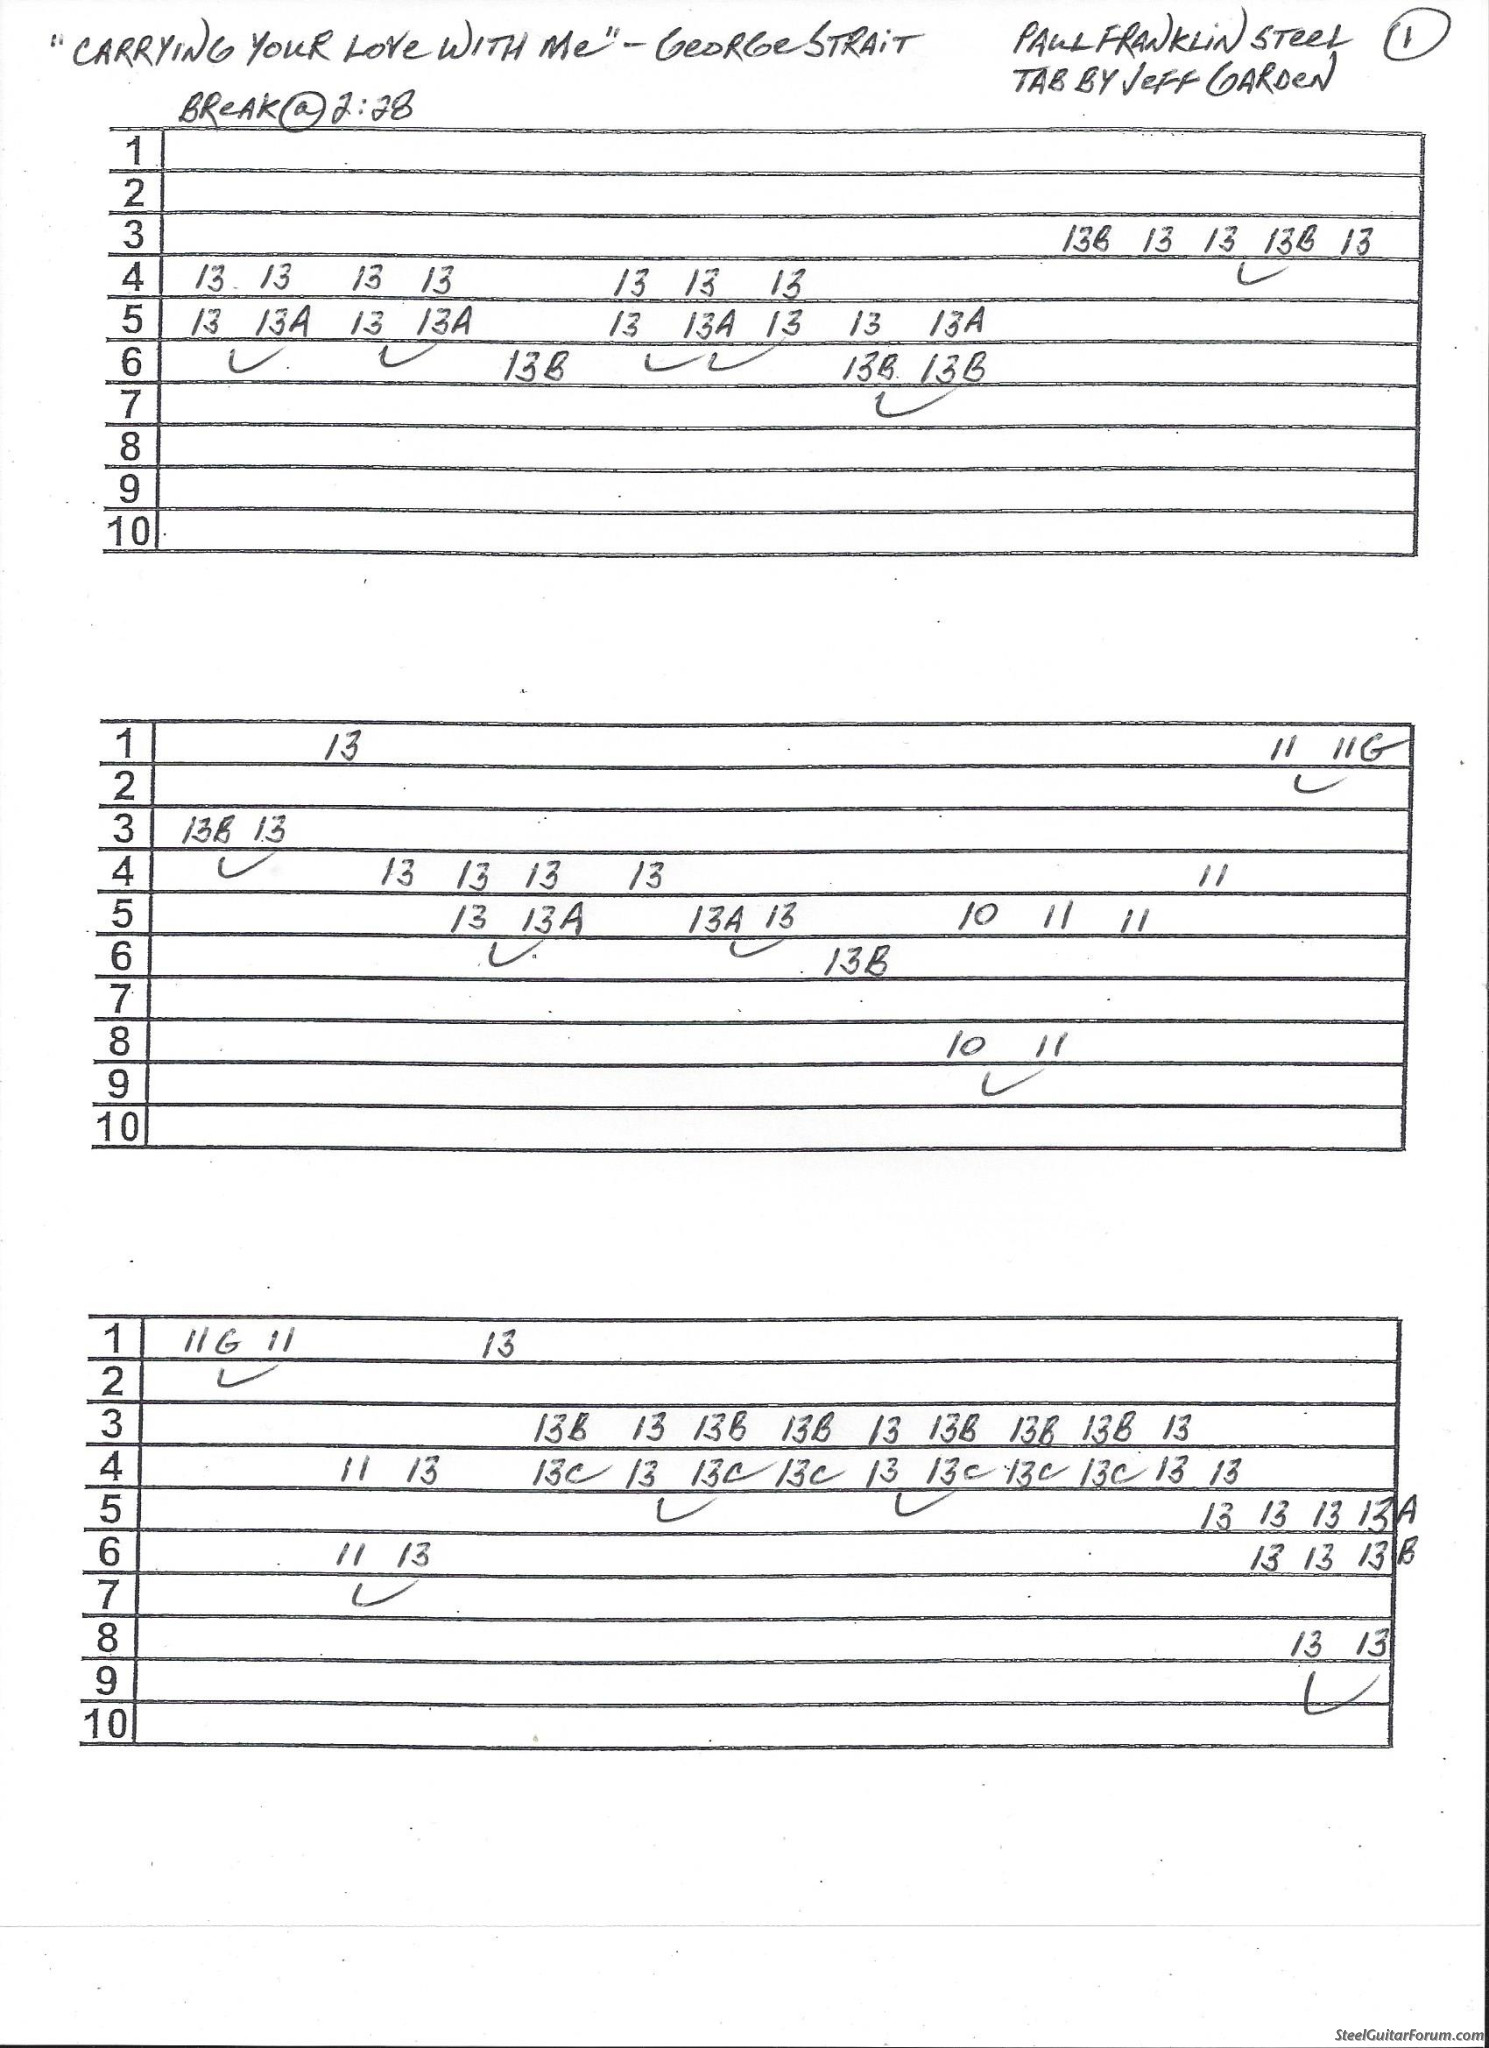 "CARRYING YOUR LOVE WITH Me" - GEORGE STRAIT PAUL FRANKLIN STEEL 1
TAB BY JEFF GARDEN
BREAK @ 2:28
1
2
3 13B 13 13 13B 13
4 13 13 13 13 13 13 13
5 13 13A 13 13A 13 13A 13 13 13A
6 13B 13B 13B
7
8
9
10
1 13 11 11G
2
3 13B 13
4 13 13 13 13 11
5 13 13A 13A 13 10 11 11
6 13B
7
8 10 11
9
10
1 11G 11 13
2
3 13B 13 13B 13B 13 13B 13B 13B 13
4 11 13 13C 13 13C 13C 13 13C 13C 13C 13 13
5 13 13 13 13A
6 11 13 13 13 13B
7
8 13 13
9
10
SteelGuitarForum.com